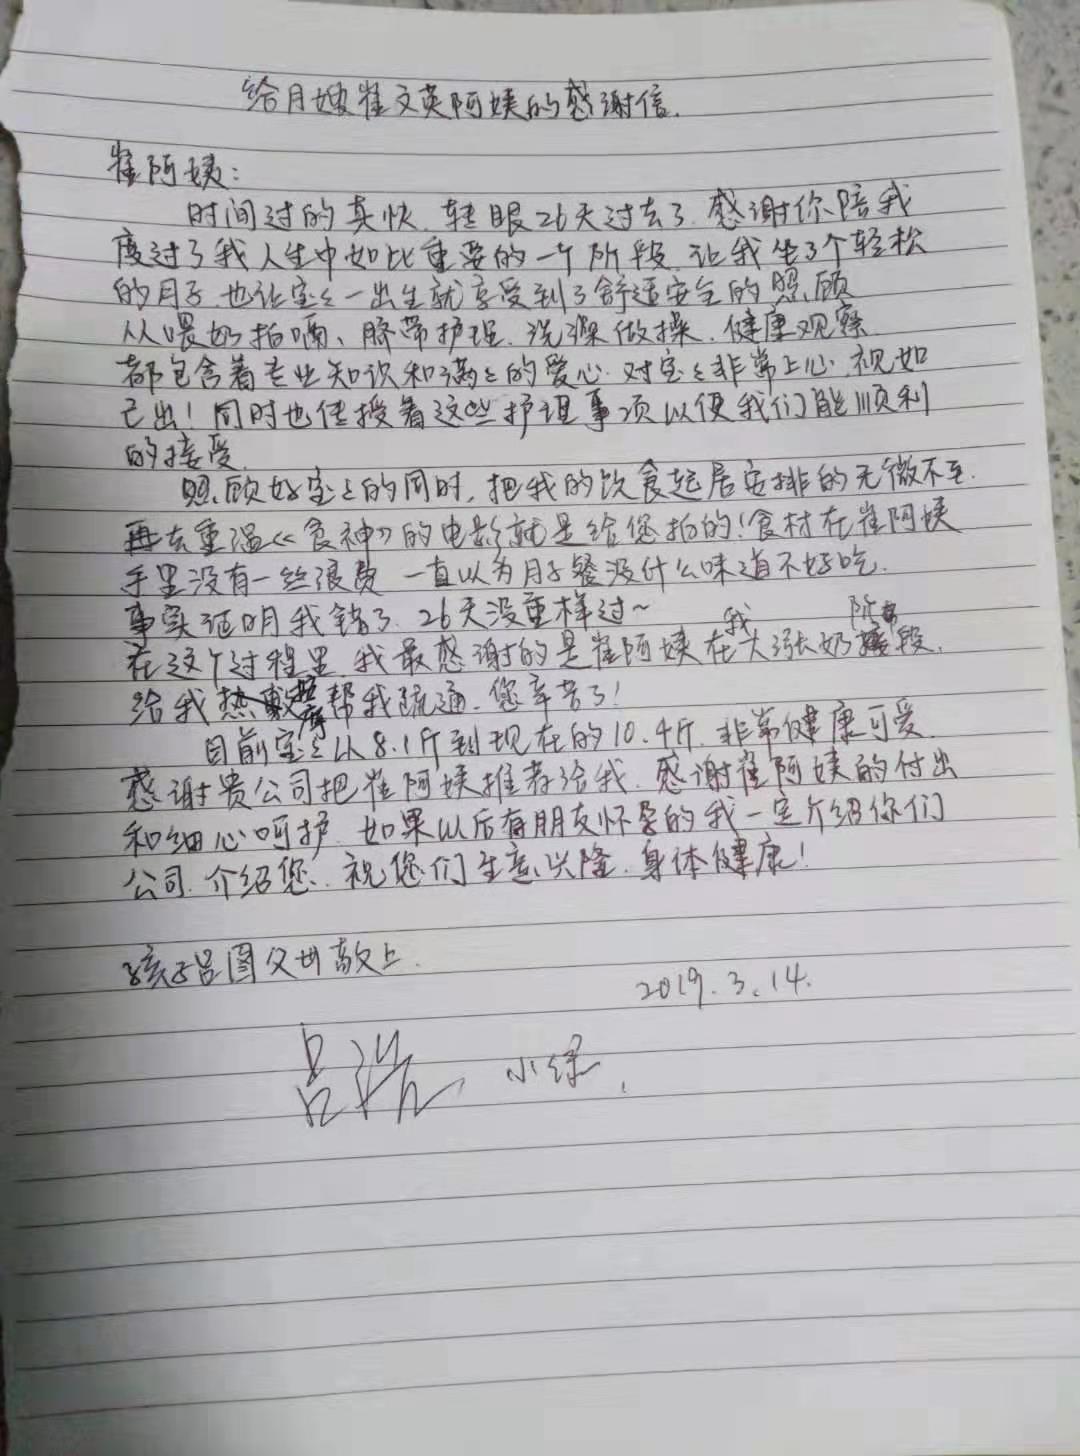 给月嫂崔文英阿姨的感谢信.
崔阿姨:
时间过的真快.转眼26天过去了.感谢你陪我
度过了我人生中如此重要的一个阶段.让我坐了个轻松
的月子也让宝宝一出生就享受到了舒适安全的照顾
从喂奶拍嗝、脐带护理.洗澡做操.健康观察
都包含着专业知识和满满的爱心.对宝宝非常上心.视如
己出!同时也传授着这些护理事项以便我们能顺利
的接受.
照顾好宝宝的同时,把我的饮食起居安排的无微不至.
再去重温《食神》的电影就是给您拍的!食材在崔阿姨
手里没有一丝浪费 一直以为月子餐没什么味道不好吃.
事实证明我错了.26天没重样过~
在这个过程里.我最感谢的是崔阿姨在我大涨奶阶段.
给我热敷按摩帮我疏通.您辛苦了!
目前宝宝从8.1斤到现在的10.4斤.非常健康可爱.
感谢贵公司把崔阿姨推荐给我.感谢崔阿姨的付出
和细心呵护.如果以后有朋友怀孕的我一定介绍你们
公司.介绍您.祝您们生意兴隆.身体健康!
孩子吕图父母敬上.
2019.3.14.
吕 小绿